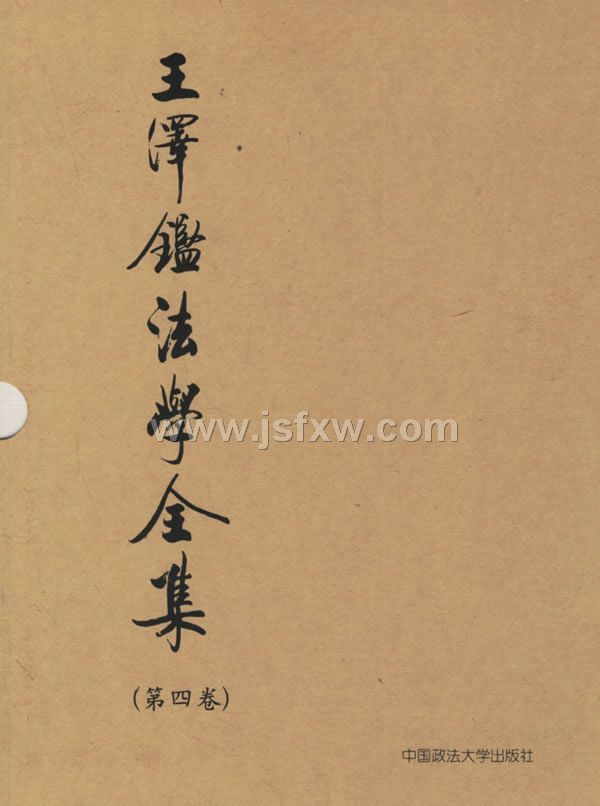 王澤鑑法學全集
www.jsfxw.com
(第四卷)
中国政法大学出版社